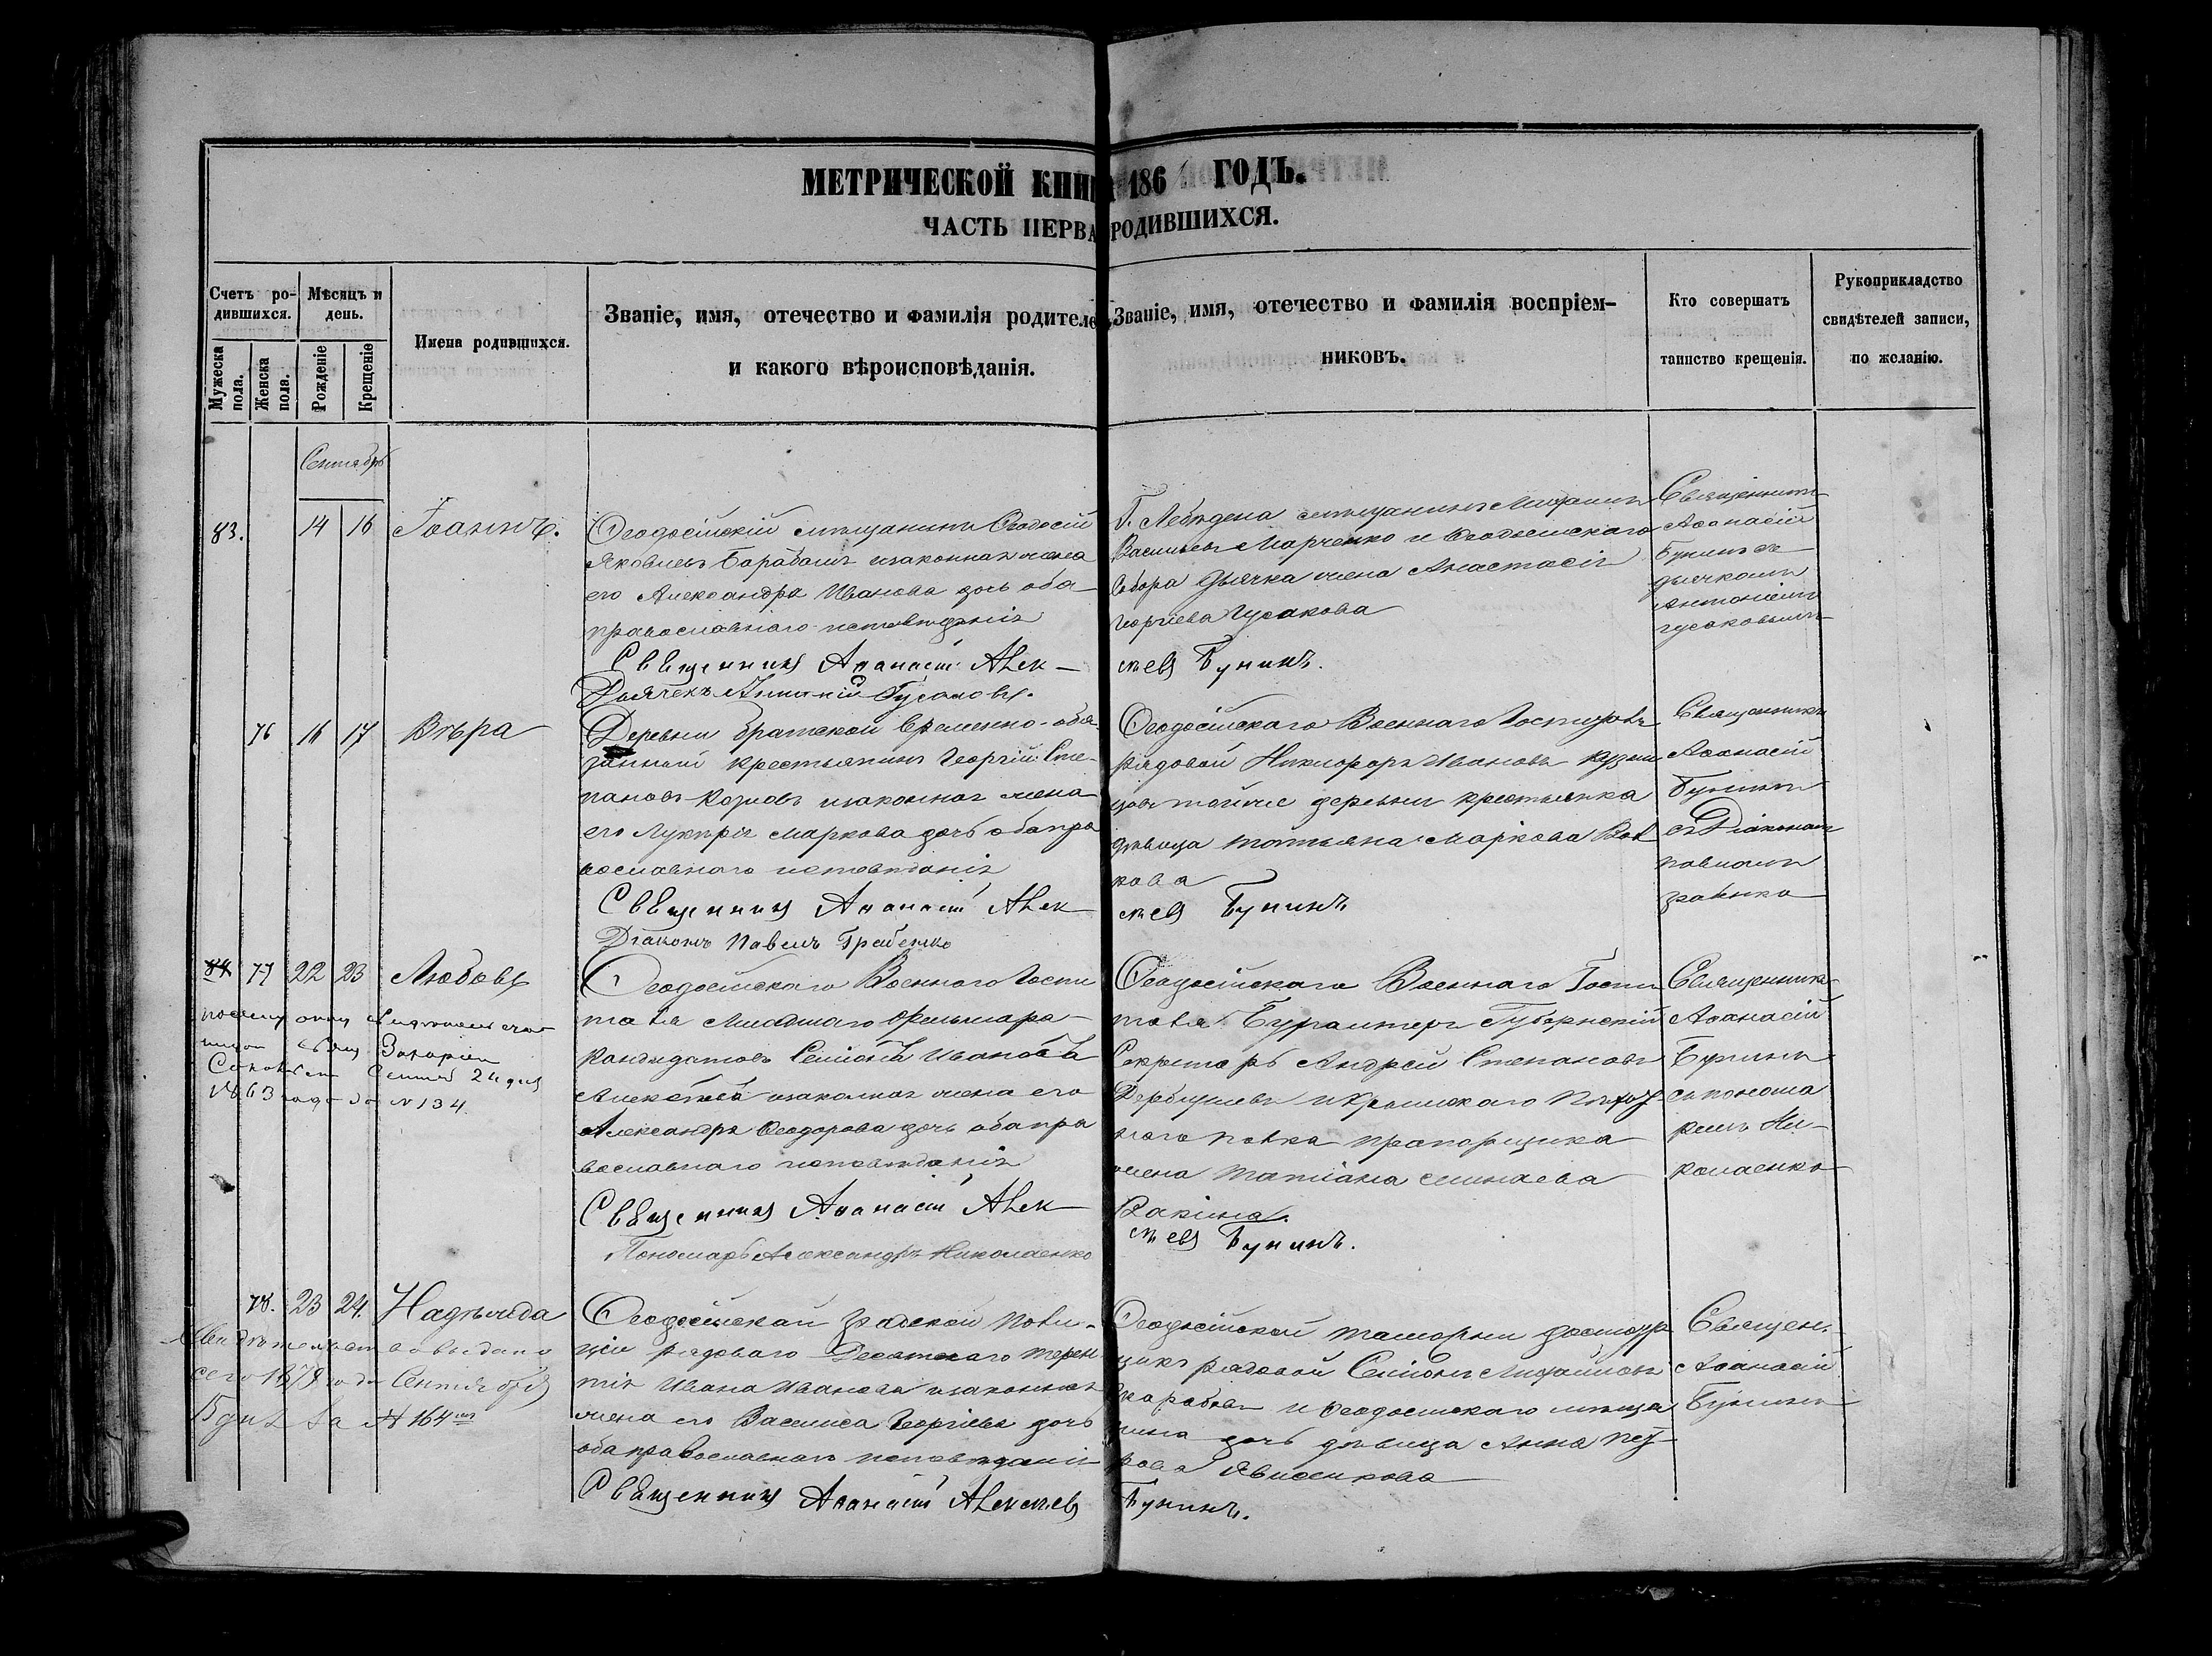 МЕТРИЧЕСКОЙ КНИГ 186 ГОДЪ.
ЧАСТЬ ПЕРВА РОДИВШИХСЯ.
Счетъ ро-
дившихся.
Мужеска пола.
Женска пола.
Мѣсяцъ и
день.
Рожденіе
Крещеніе
Имена родившихся.
Званіе, имя, отечество и фамилія родителе
и какого вѣроисповѣданія.
Званіе, имя, отечество и фамилія воспріем-
никовъ.
Кто совершатъ
таинство крещенія.
Рукоприкладство
свидѣтелей записи,
по желанію.
Сентябрь
83. 14 16 Іоаннъ.
Ѳеодосійскій мѣщанинъ Ѳеодосій
Яковлевъ Барабашъ изаконная жена
его Александра Иванова дочь оба
православнаго исповѣданія
Священникъ Аѳанасій Алек-
Дьячекъ Антоній Гусаковъ.
Г. Лебедена мѣщанинъ Михаилъ
Васильевъ Марченко и Ѳеодосійскаго
Собора Дьячка жена Анастасія
Георгіева Гусакова
сѣевъ Бунинъ.
Священникъ
Аѳанасій
Бунинъ съ
дьячкомъ
Антоніемъ
гусаковымъ
76 16 17 Вѣра
Деревни братской Временно-обя-
занный крестьянинъ Георгій Сте-
пановъ Козловъ изаконная жена
его Лукерія Маркова дочь оба пра
вославнаго исповѣданія
Священникъ Аѳанасій Алек
Діаконъ Павелъ Грабенко
Ѳеодосійскаго Военнаго Госпиталя
рядовой Никифоръ Ивановъ Кузне
цовъ тойже деревни крестьянка
дѣвица татьяна Маркова Вол
кова
сѣевъ Бунинъ
Священникъ
Аѳанасій
Бунинъ
съ Діакономъ
павломъ
грабенко
84 77 22 23 Любовь
1863 года за N 134
Ѳеодосійскаго Военнаго Госпи
таля Младшаго Фельшера
Кандидатовъ Семіонъ Ивановъ
Алексѣевъ изаконная жена его
Александра Ѳеодорова дочь оба пра
вославнаго исповѣданія
Священникъ Аѳанасій Алек
Пономарь Александръ Николаенко
Ѳеодосійскаго Военнаго Госпи
таля Бухгалтеръ Губернскій
Секретарь Андрей Степановъ
Дербишевъ и Крымскаго Пѣхот
наго полка прапорщика
жена Татіана
Ракина.
сѣевъ Бунинъ.
Священникъ
Аѳанасій
Бунинъ
съ понома
ремъ Ни-
колаенко
78. 23 24. Надѣжда
Свидѣтельство выдано
сего 1878 года Сентября
15 дня за № 164
Ѳеодосійской градской Поли-
ціи рядоваго Десятскаго терен
тія Ивана Иванова изаконная
жена его Василиса Георгіева дочь
оба православнаго исповѣданія
Священникъ Аѳанасій Алексѣевъ
Ѳеодосійской таможни досмотр
щикъ рядовой Семіонъ Михайловъ
и Ѳеодосійскаго мѣща
нина дочь дѣвица Анна пет
рова
Бунинъ.
Священ.
Аѳанасій
Бунинъ